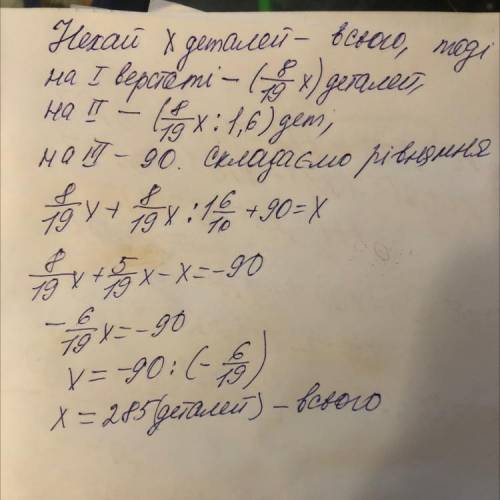 Нехай x деталей - всього, тоді
на I верстаті - (8/19 x) деталей,
на II - (8/19 x : 1,6) дет,
на III - 90. Складаємо рівняння
8/19 x + 8/19 x : 1 6/10 + 90 = x
8/19 x + 5/19 x - x = -90
- 6/19 x = -90
x = -90 : (- 6/19)
x = 285 (деталей) - всього